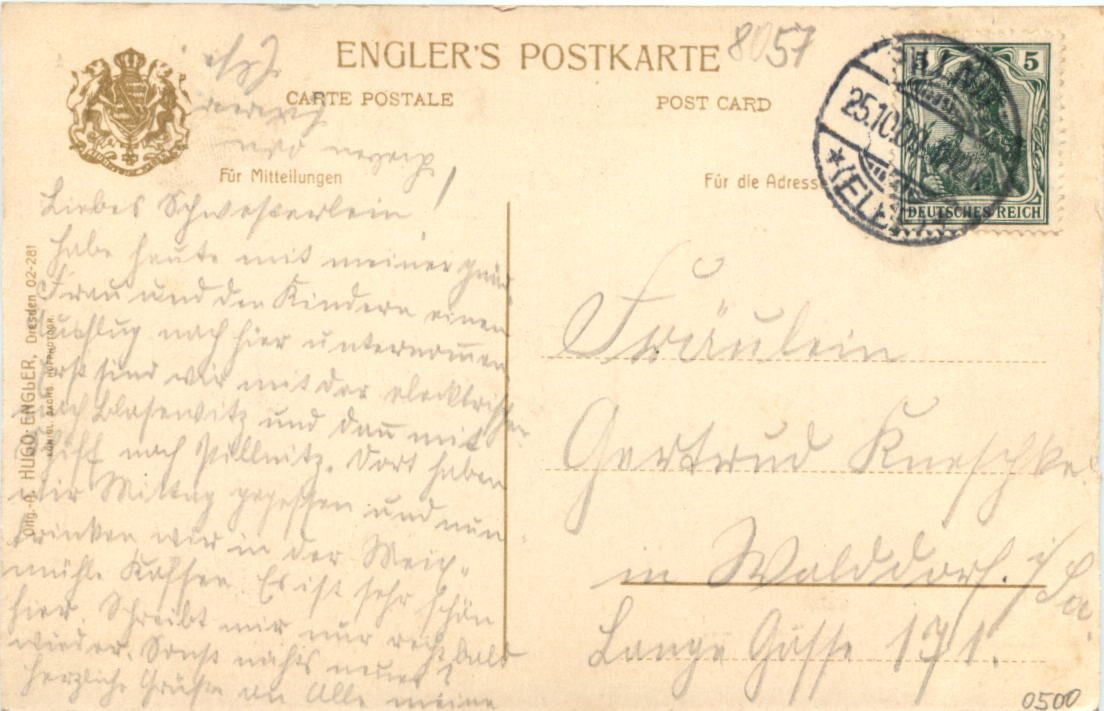 8057
ENGLER'S POSTKARTE
CARTE POSTALE
POST CARD
Für Mitteilungen
Für die Adresse
5 5
DEUTSCHES REICH
25.10.09.
*(ELBE)*
Liebes Schwesterlein!
habe heute mit meiner gnäd.
Frau und den Kindern einen
Ausflug nach hier unternommen
Erst sind wir mit der elecktrischen
nach Blasewitz und dann mit
Schiff nach Pillnitz. Dort haben
wir Mittag gegessen und nun
trinken wir in der Meix-
mühle Kaffee. Es ist sehr schön
hier. Schreibt mir nur recht bald
wieder. Sonst nichts neues
herzliche Grüße an Alle meine
Orig.-A. HUGO ENGLER, Dresden 02-281
KÖNIGL. SÄCHS. HOFPHOTOGR.
Fräulein
Gertrud Kneschke
in Walddorf. i/Sa.
Lange Gasse 171.
0500